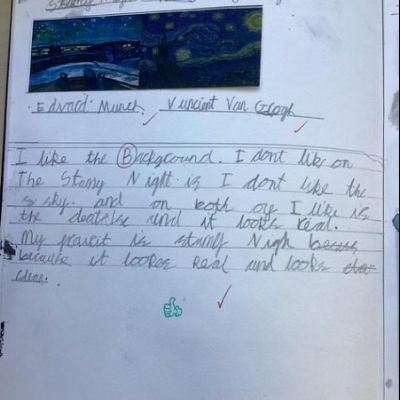 Starry Night
Edvard Munch. Vuncient Van Gogh
I like the Background. I dont like on
The Starry Night is I dont like the
sky. and on both oe I like is
the deatelse and it looks real.
My fravrit is starry Nigh becuse
because it lookes Real and looks